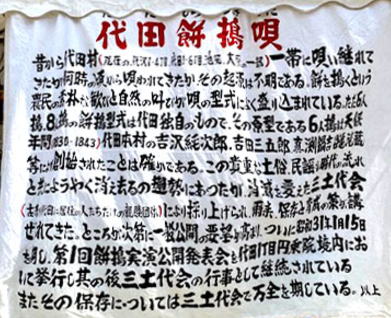 代田餅搗唄
昔から代田村(現在の代沢1-4丁目 代田1-6丁目 一部)一帯に唄い継れて
きたが何時の頃から唄われてきたかその起源は不明である。餅を搗くという
農民の素朴な歓びと自然の叫びが唄の型式によく盛り込まれている。ただ6人
搗、8人搗の餅搗型式は代田独自のもので、その原型である6人搗は天保
年間(1830-1843)代田本村の吉沢 次郎、吉田三五郎、
等に創始されたことは確かである。この貴重な土俗、民謡も時代の流れ
と共にようやく消え去るの趨勢にあったが、消滅を憂えた三土代会
により採り上げられ、爾来、保存と育成の策が講
ぜれてきた。ところが次第に一般公開の要望が高まり、ついに昭和31年1月15日
を期し、第1回餅搗実演公開発表会を代田1丁目円乗院境内にお
いて挙行し其の後三土代会の行事として継続されている
またその保存については三土代会で万全を期している。以上